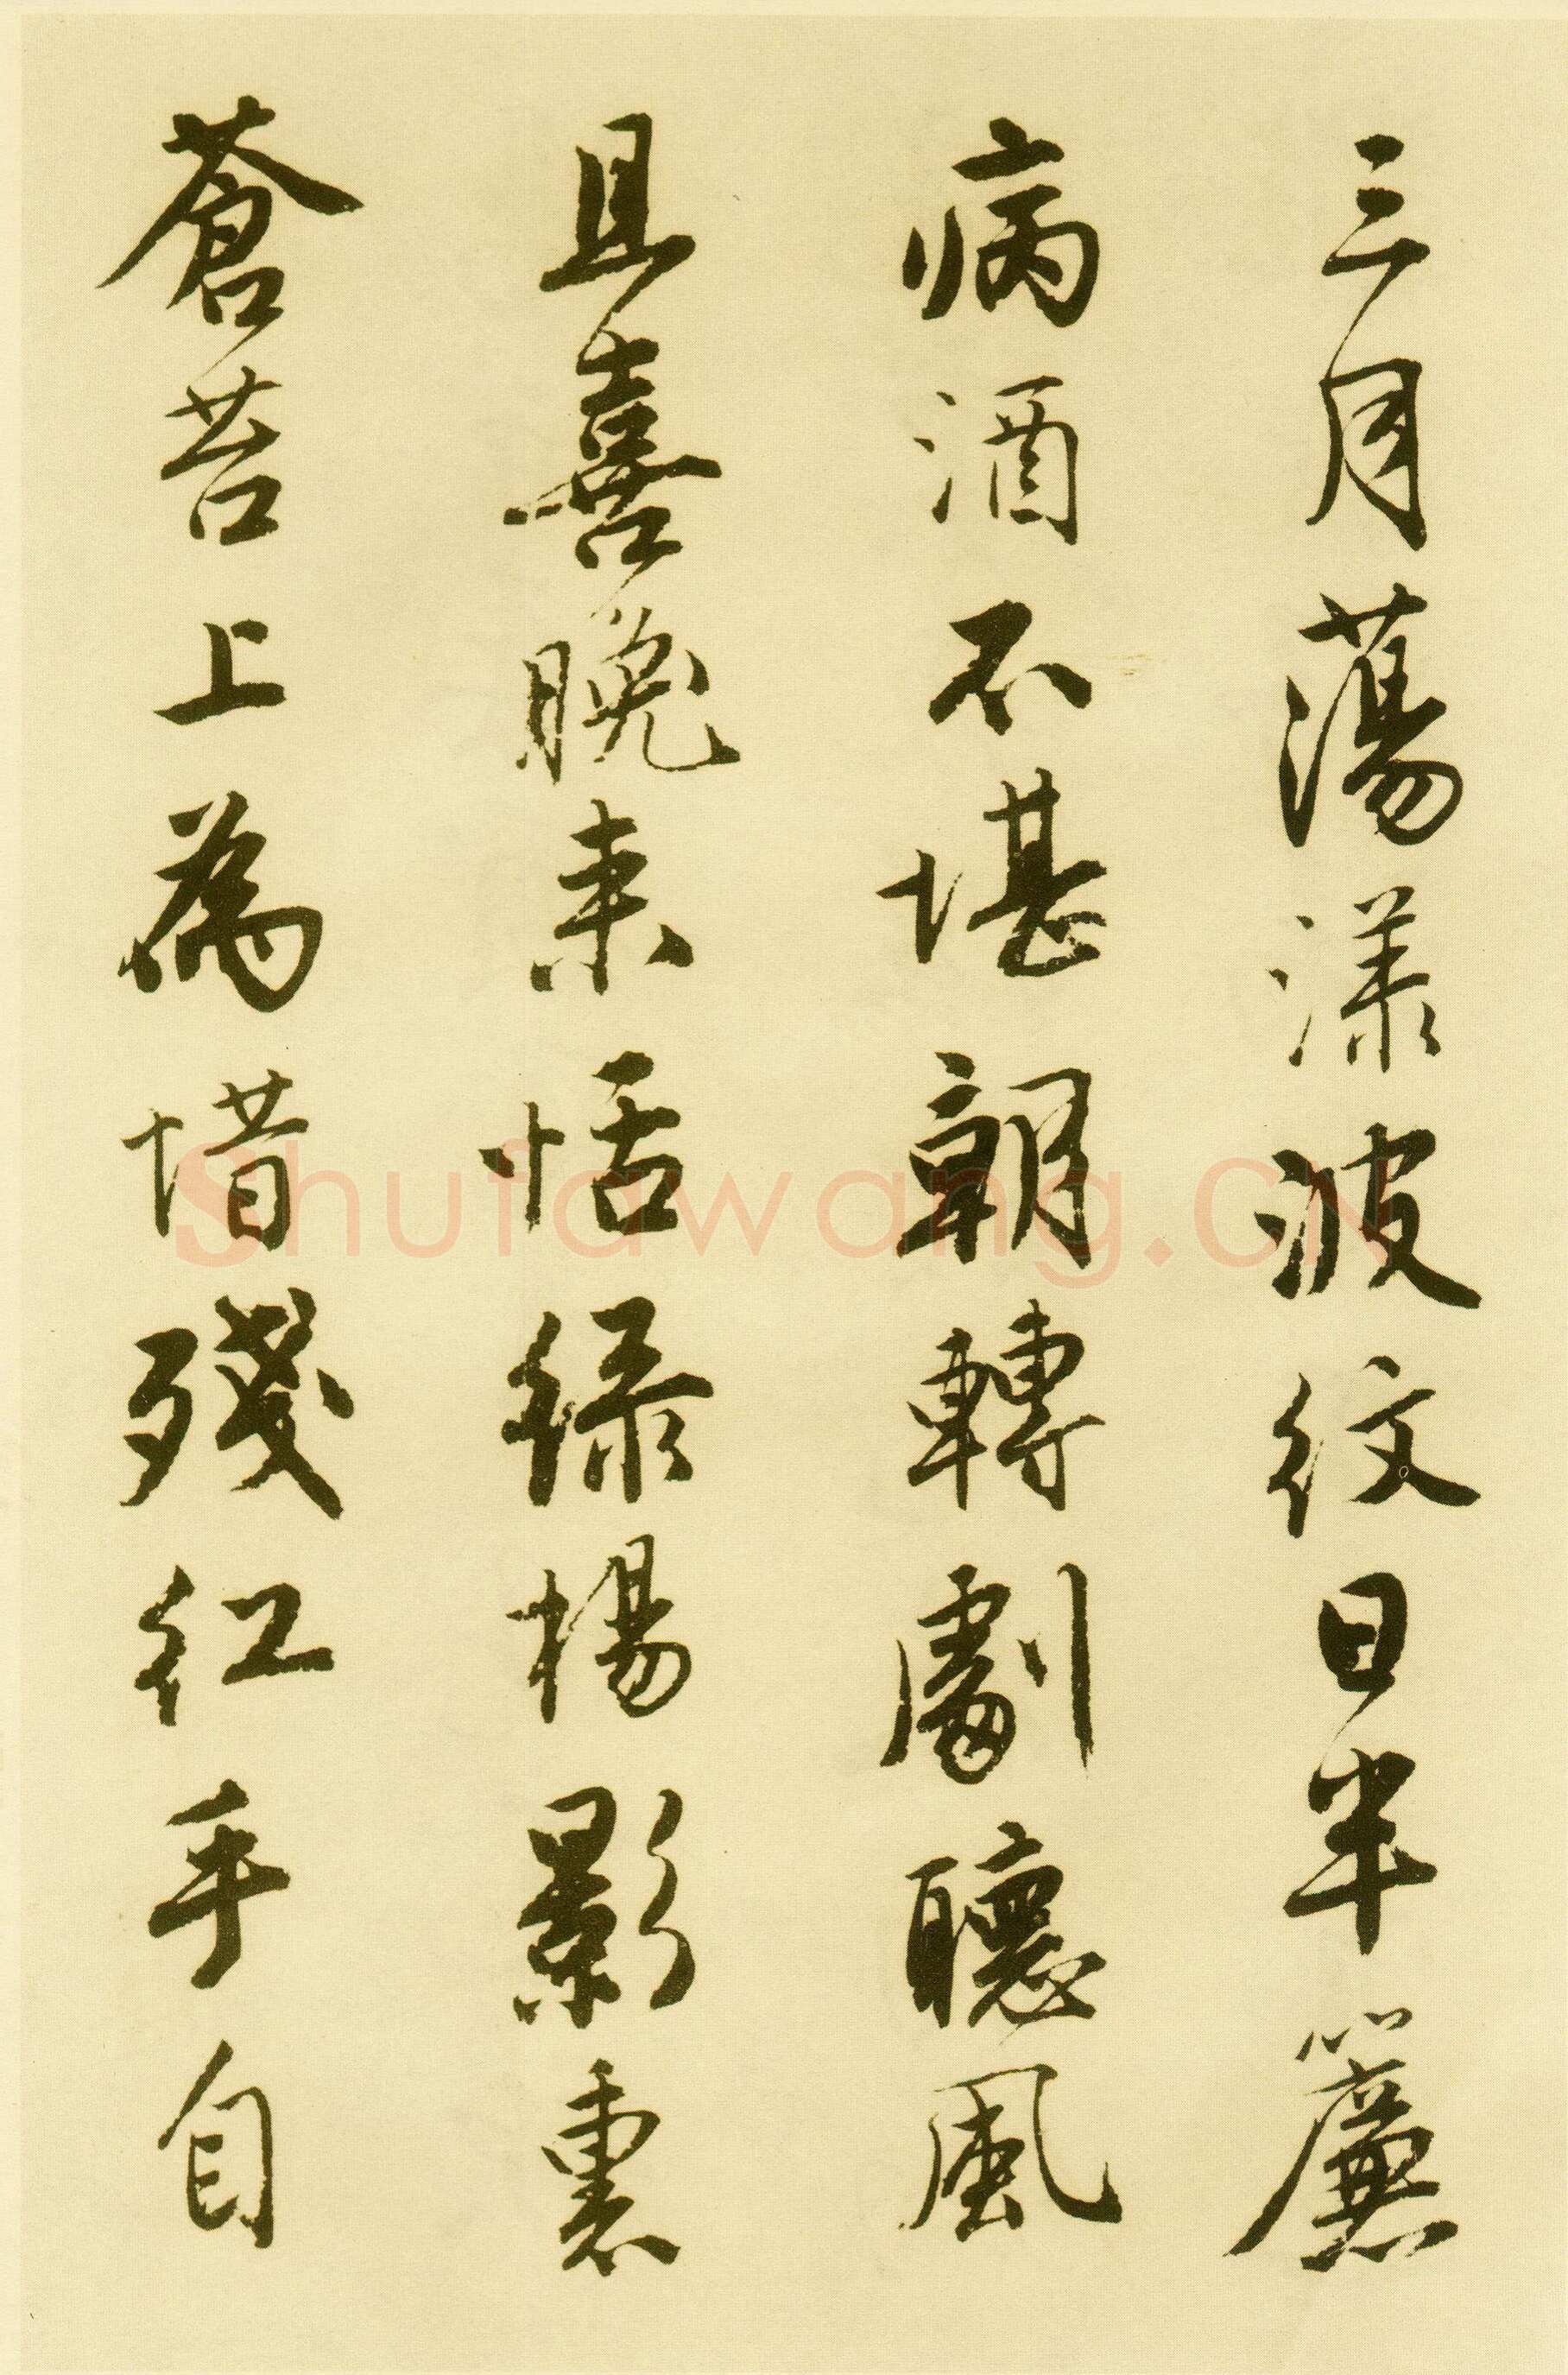 三月蕩漾波紋日半簾
病酒不堪朝轉劇聽風
且喜晚来恬緑楊影裏
蒼苔上為惜殘紅手自
Shufawang.CN